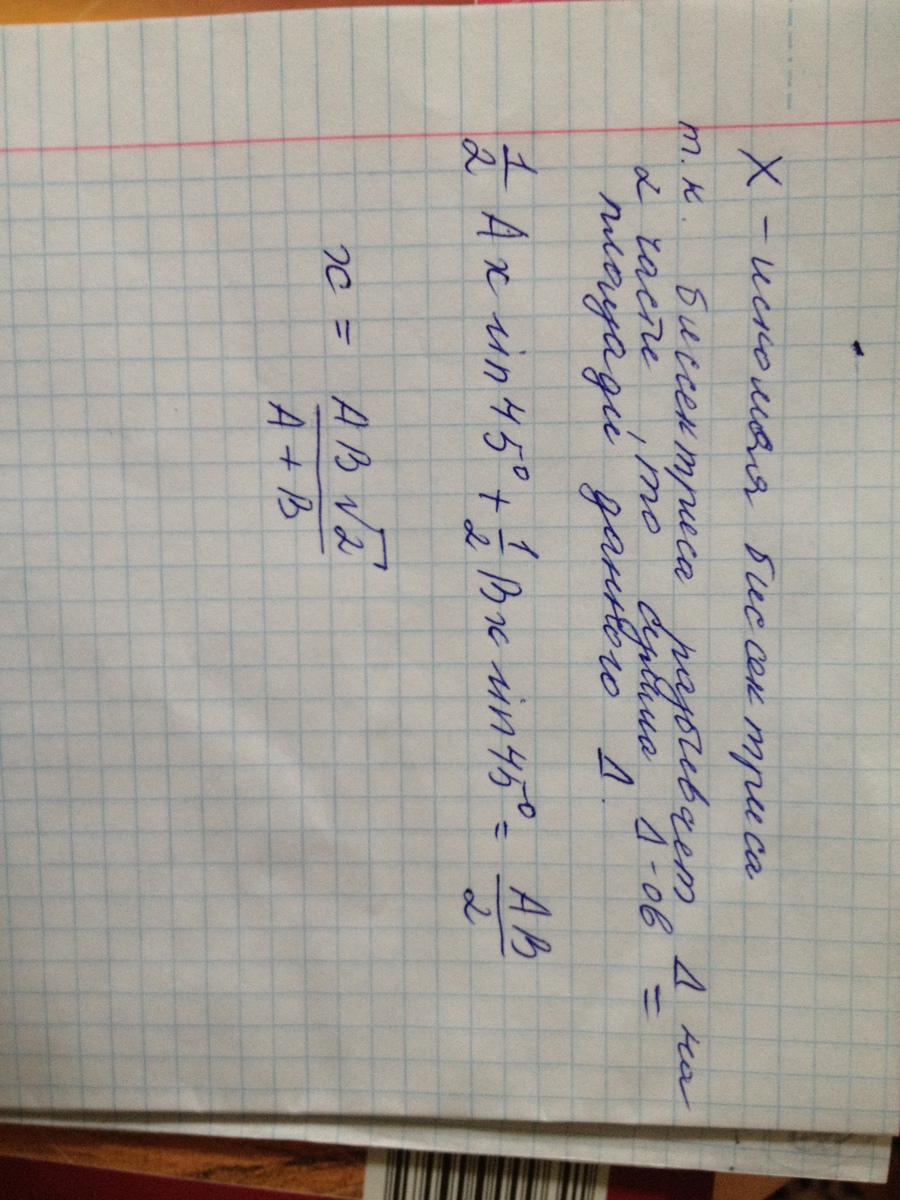 X - искомая биссектриса
т.к. биссектриса разбивает Δ на
2 части, то сумма Δ-ов =
площади данного Δ.
1/2 A x sin 45° + 1/2 B x sin 45° = AB/2
x = AB√2/(A + B)